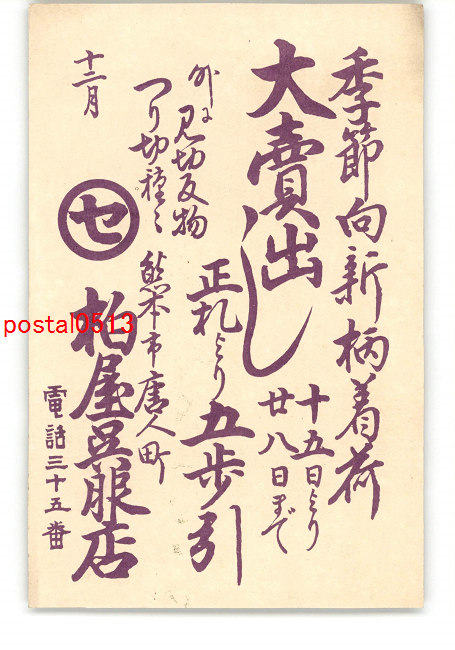 季節向新柄着荷
大賣出し
十五日より
廿八日まで
正札より五歩引
外に見切反物
つり切種々
十二月
熊本市唐人町
セ
柏屋呉服店
電話三十五番
postal0513